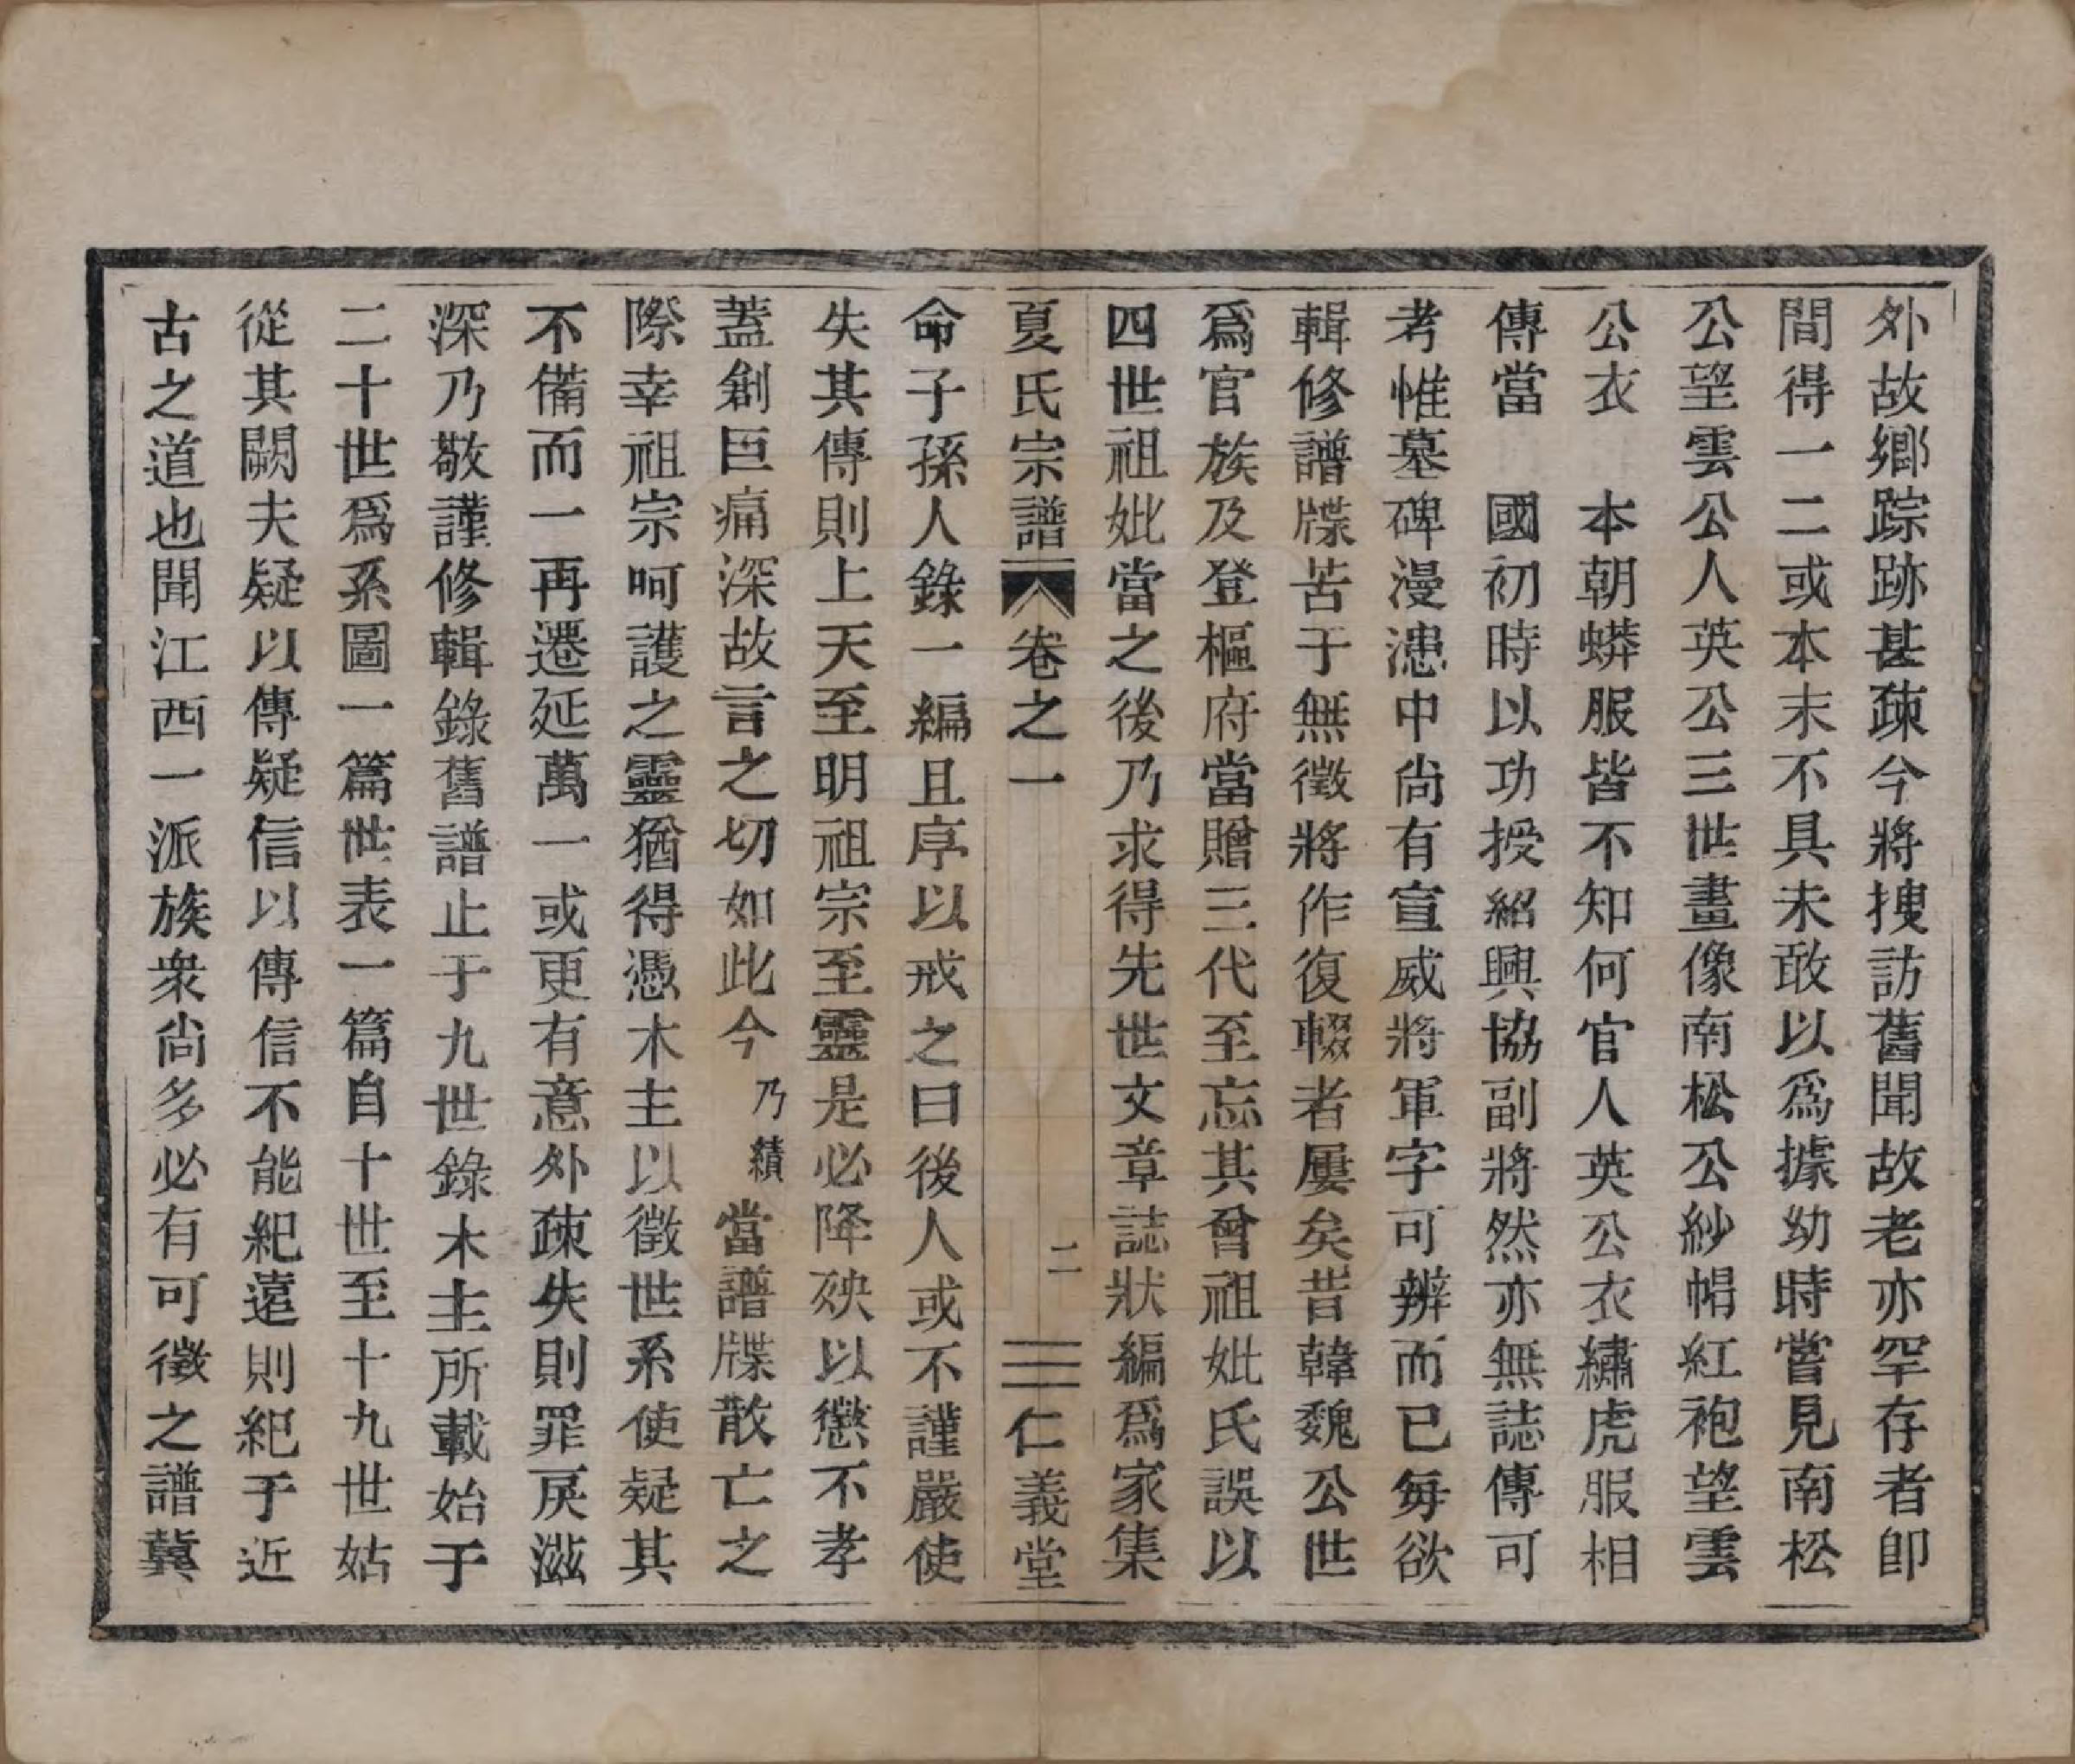 外故鄉踪跡甚疎今將搜訪舊聞故老亦罕存者卽
間得一二或本末不具未敢以爲據幼時嘗見南松
公望雲公人英公三世畫像南松公紗帽紅袍望雲
公衣　本朝蟒服皆不知何官人英公衣繡虎服相
傳當　國初時以功授紹興協副將然亦無誌傳可
考惟墓碑漫漶中尙有宣威將軍字可辨而已每欲
輯修譜牒苦于無徵將作復輟者屢矣昔韓魏公世
爲官族及登樞府當贈三代至忘其曾祖妣氏誤以
四世祖妣當之後乃求得先世文章誌狀編爲家集
夏氏宗譜　卷之一　二　仁義堂
命子孫人錄一編且序以戒之曰後人或不謹嚴使
失其傳則上天至明祖宗至靈是必降殃以懲不孝
蓋創巨痛深故言之切如此今乃績當譜牒散亡之
際幸祖宗呵護之靈猶得憑木主以徵世系使疑其
不備而一再遷延萬一或更有意外疎失則罪戾滋
深乃敬謹修輯錄舊譜止于九世錄木主所載始于
二十世爲系圖一篇世表一篇自十世至十九世姑
從其闕夫疑以傳疑信以傳信不能紀遠則紀于近
古之道也聞江西一派族衆尙多必有可徵之譜冀